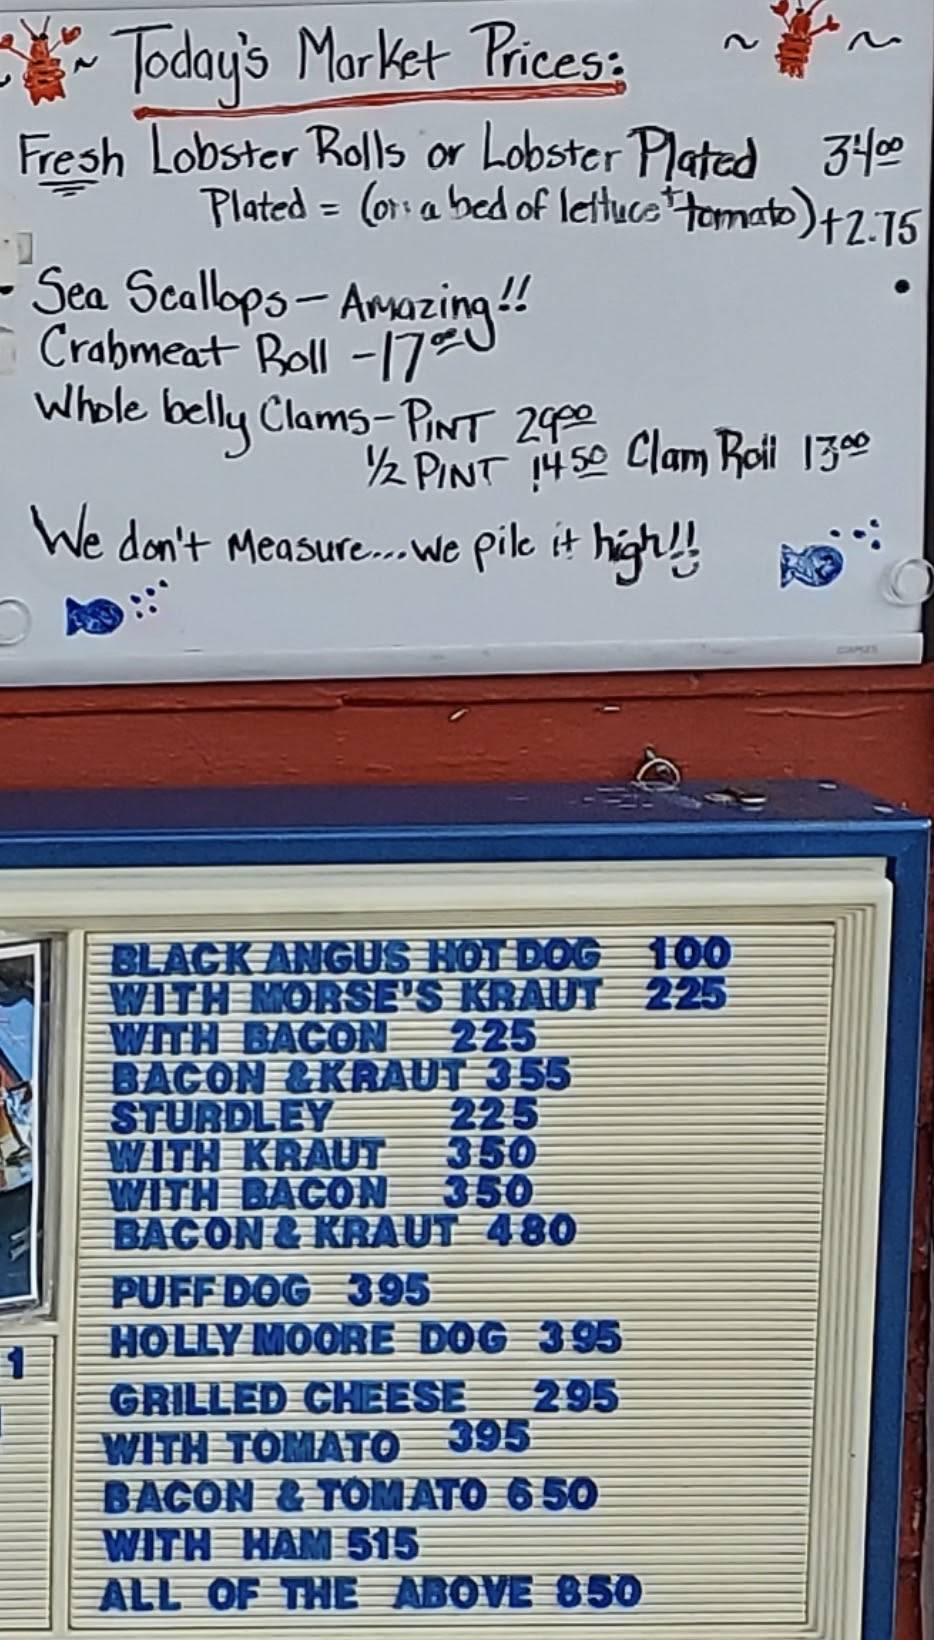 Today's Market Prices:
Fresh Lobster Rolls or Lobster Plated 34⁰⁰
Plated = (on a bed of lettuce + tomato) +2.75
Sea Scallops - Amazing!!
Crabmeat Roll - 17⁰⁰
Whole belly Clams - PINT 29⁰⁰
1/2 PINT 14⁵⁰ Clam Roll 13⁰⁰
We don't measure... we pile it high!!
STAPLES
BLACK ANGUS HOT DOG 100
WITH MORSE'S KRAUT 225
WITH BACON 225
BACON & KRAUT 355
STURDLEY 225
WITH KRAUT 350
WITH BACON 350
BACON & KRAUT 480
PUFF DOG 395
HOLLY MOORE DOG 395
1
GRILLED CHEESE 295
WITH TOMATO 395
BACON & TOMATO 650
WITH HAM 515
ALL OF THE ABOVE 850